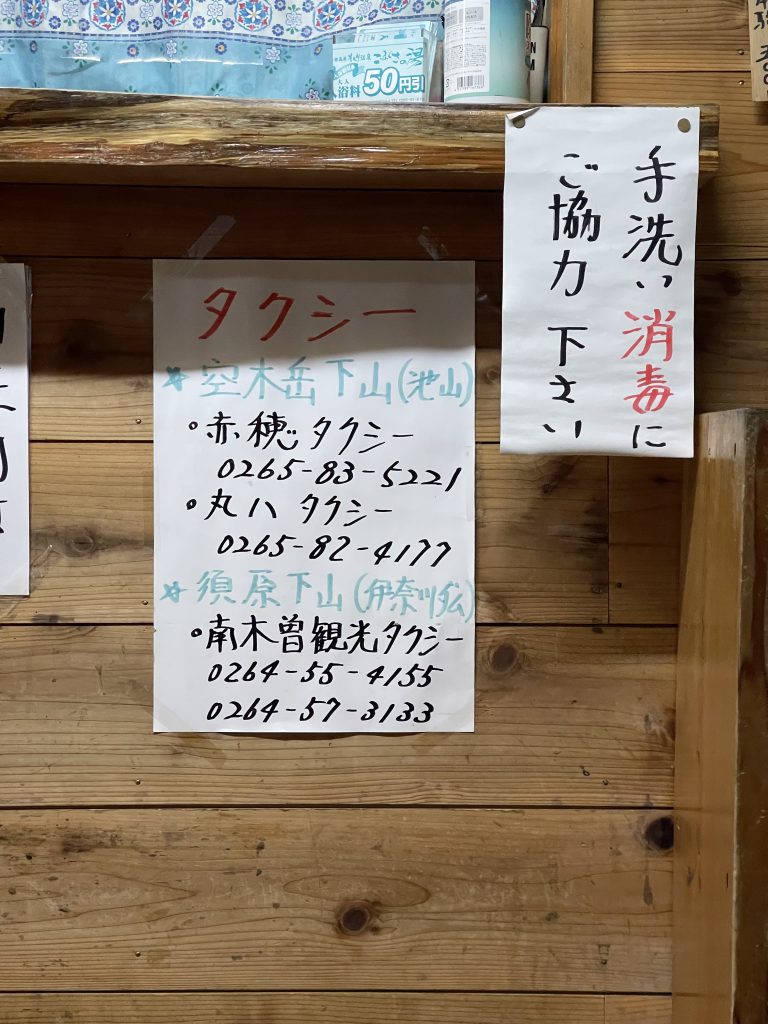 こぶしの湯
浴料50円引
手洗い消毒に
ご協力下さい
タクシー
空木岳下山(池山)
赤穂タクシー
0265-83-5221
丸八タクシー
0265-82-4177
須原下山(伊奈川ダム)
南木曽観光タクシー
0264-55-4155
0264-57-3133